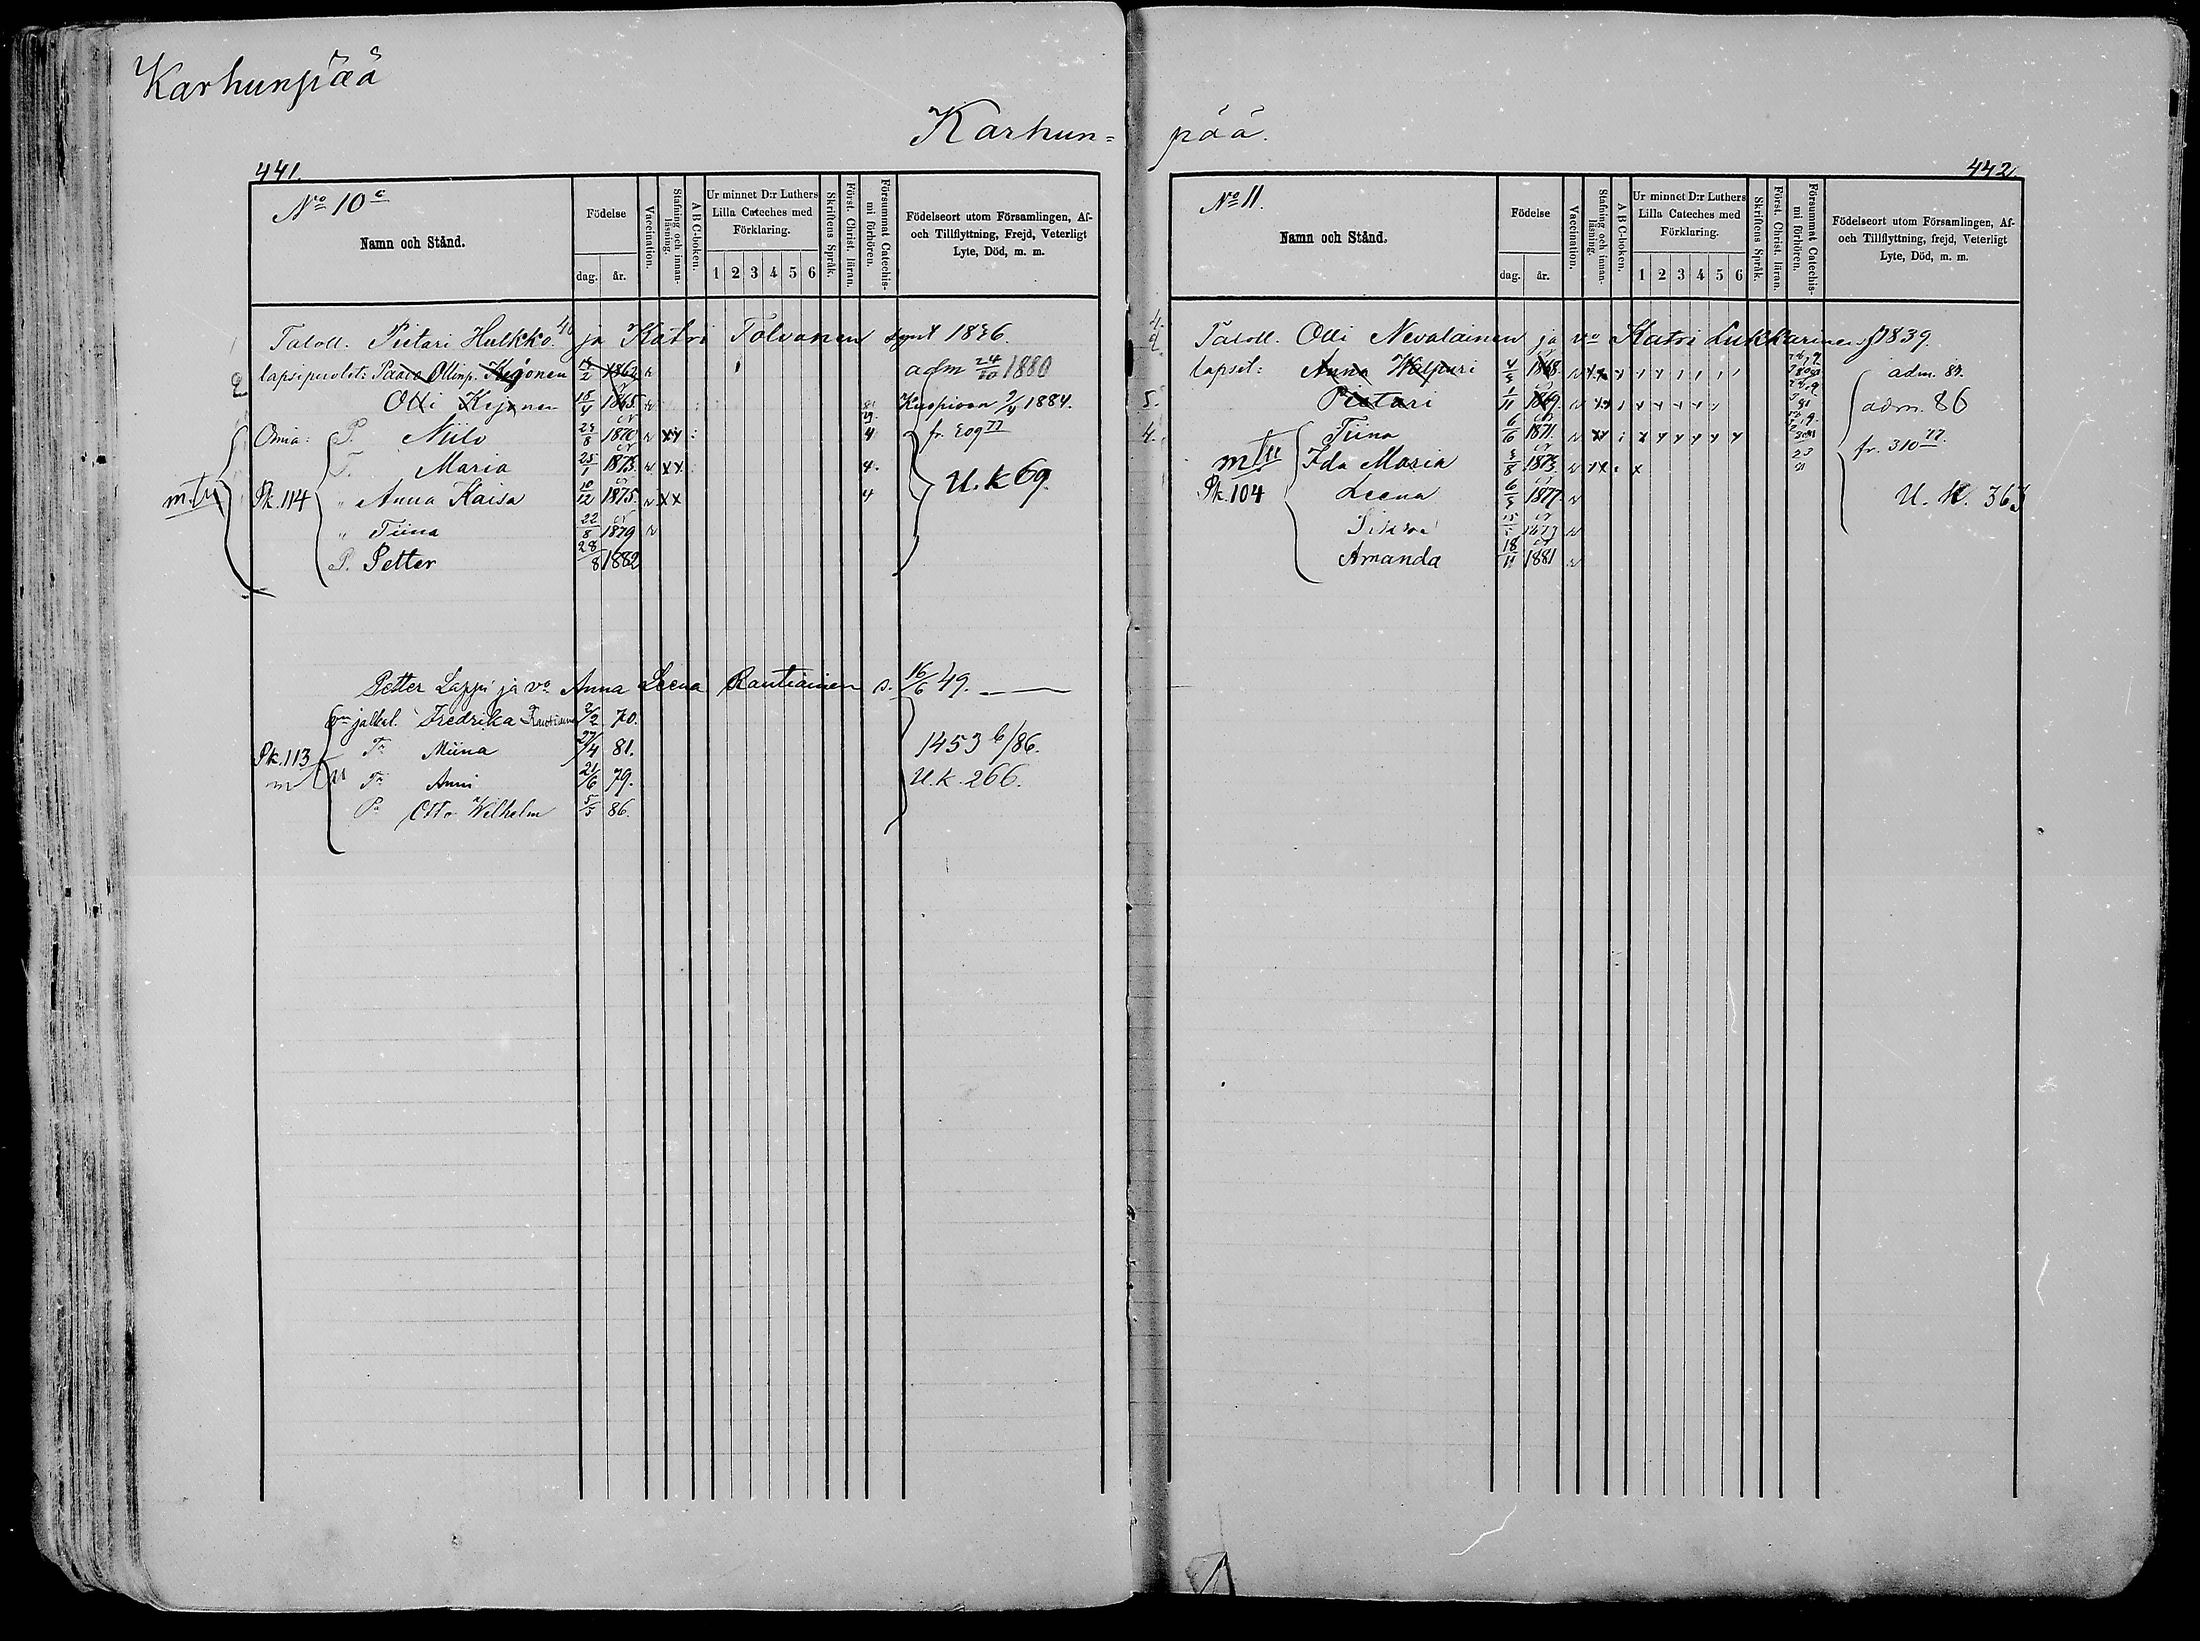 Karhunpää
Karhun=
441.
No 10 c
Namn och Stånd.
Födelse
dag. år.
Vaccination.
Stafning och innanläsning.
A B C-boken.
Ur minnet D:r Luthers Lilla Cateches med Förklaring.
1 2 3 4 5 6
Skriftens Språk.
Först. Christ. läran.
Försummat Catechismi förhören.
Födelseort utom Församlingen, Af- och Tillflyttning, Frejd, Veterligt Lyte, Död, m. m.
Taloll. Pietari Hulkko 40 ja Katri Tolvanen synt 1836.
lapsipuolet: Paavo Ollinp. Kejonen 1862 adm 24/10 1880
Olli Kejonen 15/4 1865 Kuopioon 2/4 1884.
Omia: P. Niilo 1870 4 fr. 309 77
T. Maria 25/1 1873 xx 4. U.k 69.
m.tu Pk. 114 " Anna Kaisa 10/12 1875. xx 4
" Tiina 22/8 1879
P. Petter 28/8 1882
Petter Lappi ja vo Anna Leena Rautiainen s. 16/6 49.
Fredrika Rautiainen 2/2 70.
Pk. 113 Tr Miina 27/4 81. 1453 b/86.
m Tr Anni 21/6 79. U.k. 266.
Pa Otto Wilhelm 5/5 86.
pää.
442.
No 11.
Namn och Stånd.
Födelse
dag. år.
Vaccination.
Stafning och innanläsning.
A B C-boken.
Ur minnet D:r Luthers Lilla Cateches med Förklaring.
1 2 3 4 5 6
Skriftens Språk.
Först. Christ. läran.
Försummat Catechismi förhören.
Födelseort utom Församlingen, Af- och Tillflyttning, frejd, Veterligt Lyte, Död, m. m.
Taloll. Olli Nevalainen ja vo Katri Lukkarinen 1839.
lapset: Anna Walpuri 1868 adm. 84.
5. Pietari 1/11 1869. adm. 86
4. Tiina 6/6 1871. fr. 310 77.
m tu Ida Maria 1873
Pk. 104 Leena 1877 U. K. 363
Amanda 18/11 1881